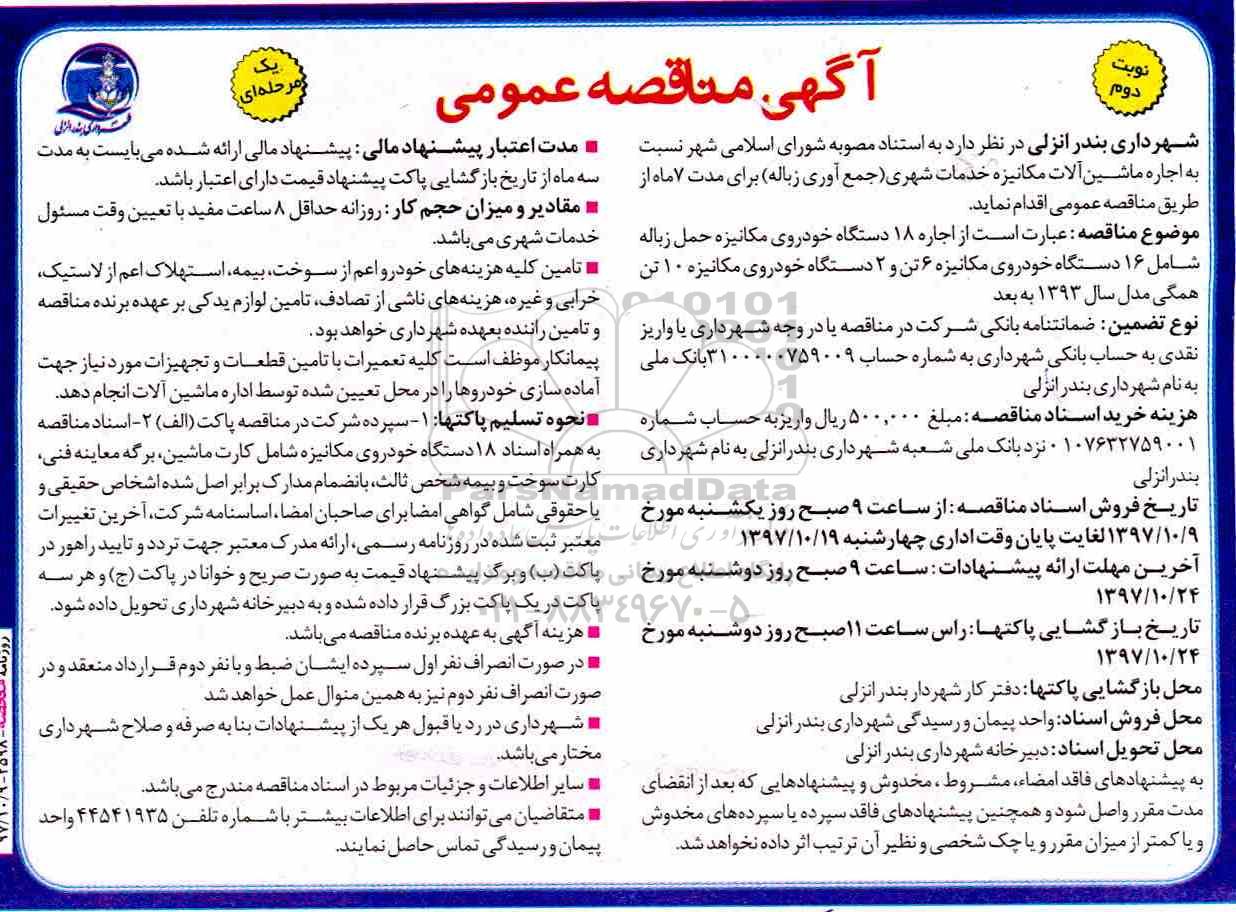 آگهی مناقصه عمومی
نوبت
دوم
یک
مرحله‌ای
شهرداری بندر انزلی
شهرداری بندر انزلی در نظر دارد به استناد مصوبه شورای اسلامی شهر نسبت
به اجاره ماشین‌آلات مکانیزه خدمات شهری(جمع آوری زباله) برای مدت ۷ماه از
طریق مناقصه عمومی اقدام نماید.
موضوع مناقصه : عبارت است از اجاره ۱۸ دستگاه خودروی مکانیزه حمل زباله
شامل ۱۶ دستگاه خودروی مکانیزه ۶ تن و ۲ دستگاه خودروی مکانیزه ۱۰ تن
همگی مدل سال ۱۳۹۳ به بعد
نوع تضمین : ضمانتنامه بانکی شرکت در مناقصه یا در وجه شهرداری یا واریز
نقدی به حساب بانکی شهرداری به شماره حساب ۳۱۰۰۰۰۰۷۵۹۰۰۹بانک ملی
به نام شهرداری بندر انزلی
هزینه خرید اسناد مناقصه : مبلغ ۵۰۰,۰۰۰ ریال واریز به حساب شماره
۰۱۰۷۶۳۲۷۵۹۰۰۱ نزد بانک ملی شعبه شهرداری بندرانزلی به نام شهرداری
بندرانزلی
تاریخ فروش اسناد مناقصه : از ساعت ۹ صبح روز یکشنبه مورخ
۱۳۹۷/۱۰/۹لغایت پایان وقت اداری چهارشنبه ۱۳۹۷/۱۰/۱۹
آخرین مهلت ارائه پیشنهادات : ساعت ۹ صبح روز دوشنبه مورخ
۱۳۹۷/۱۰/۲۴
تاریخ بازگشایی پاکتها: راس ساعت ۱۱صبح روز دوشنبه مورخ
۱۳۹۷/۱۰/۲۴
محل بازگشایی پاکتها: دفتر کار شهردار بندر انزلی
محل فروش اسناد: واحد پیمان و رسیدگی شهرداری بندر انزلی
محل تحویل اسناد: دبیرخانه شهرداری بندر انزلی
به پیشنهادهای فاقد امضاء، مشروط ، مخدوش و پیشنهادهایی که بعد از انقضای
مدت مقرر واصل شود و همچنین پیشنهادهای فاقد سپرده یا سپرده‌های مخدوش
و یا کمتر از میزان مقرر و یا چک شخصی و نظیر آن ترتیب اثر داده نخواهد شد.
■ مدت اعتبار پیشنهاد مالی : پیشنهاد مالی ارائه شده می‌بایست به مدت
سه ماه از تاریخ بازگشایی پاکت پیشنهاد قیمت دارای اعتبار باشد.
■ مقادیر و میزان حجم کار : روزانه حداقل ۸ ساعت مفید با تعیین وقت مسئول
خدمات شهری می‌باشد.
■ تامین کلیه هزینه‌های خودرو اعم از سوخت، بیمه، استهلاک اعم از لاستیک،
خرابی و غیره، هزینه‌های ناشی از تصادف، تامین لوازم یدکی بر عهده برنده مناقصه
و تامین راننده بعهده شهرداری خواهد بود .
پیمانکار موظف است کلیه تعمیرات با تامین قطعات و تجهیزات مورد نیاز جهت
آماده سازی خودروها را در محل تعیین شده توسط اداره ماشین آلات انجام دهد.
■ نحوه تسلیم پاکتها: ۱-سپرده شرکت در مناقصه پاکت (الف) ۲-اسناد مناقصه
به همراه اسناد ۱۸دستگاه خودروی مکانیزه شامل کارت ماشین، برگه معاینه فنی،
کارت سوخت و بیمه شخص ثالث، بانضمام مدارک برابر اصل شده اشخاص حقیقی و
یا حقوقی شامل گواهی امضا برای صاحبان امضا، اساسنامه شرکت، آخرین تغییرات
معتبر ثبت شده در روزنامه رسمی، ارائه مدرک معتبر جهت تردد و تایید راهور در
پاکت (ب) و برگ پیشنهاد قیمت به صورت صریح و خوانا در پاکت (ج) و هر سه
پاکت در یک پاکت بزرگ قرار داده شده و به دبیرخانه شهرداری تحویل داده شود.
■ هزینه آگهی به عهده برنده مناقصه می‌باشد.
■ در صورت انصراف نفر اول سپرده ایشان ضبط و با نفر دوم قرارداد منعقد و در
صورت انصراف نفر دوم نیز به همین منوال عمل خواهد شد
■ شهرداری در رد یا قبول هر یک از پیشنهادات بنا به صرفه و صلاح شهرداری
مختار می‌باشد.
■ سایر اطلاعات و جزئیات مربوط در اسناد مناقصه مندرج می‌باشد.
■ متقاضیان می‌توانند برای اطلاعات بیشتر با شماره تلفن ۴۴۵۴۱۹۳۵ واحد
پیمان و رسیدگی تماس حاصل نمایند.
ParsNamadData
۰۲۱-۸۸۳۴۹۶۷۰-۵